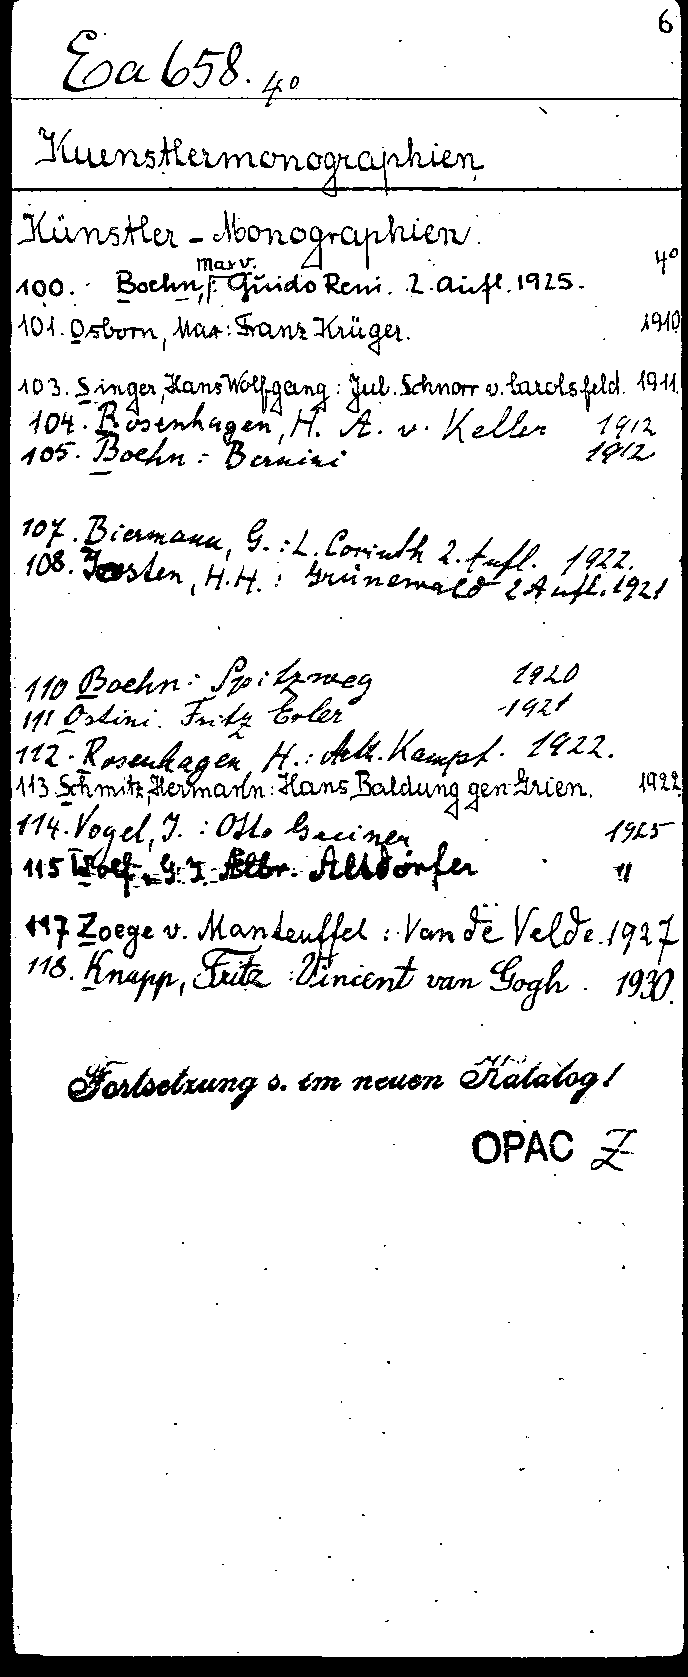 6
Ea 658. 4°
Kuenstlermonographien
Künstler - Monographien.
4°
100. Boehn, Max v. : Guido Reni. 2. Aufl. 1925.
101. Osborn, Max: Franz Krüger. 1910
103. Singer, Hans Wolfgang: Jul. Schnorr v. Carolsfeld. 1911.
104. Rosenhagen, H. A. v. Keller 1912
105. Boehn: Bernini 1912
107. Biermann, G.: L. Corinth 2. Aufl. 1922.
108. Josten, H. H.: Grünewald 2 Aufl. 1921
110 Boehn: Spitzweg 1920
111 Ostini. Fritz Erler 1921
112. Rosenhagen, H.: Arth. Kampf. 1922.
113. Schmitz, Hermann: Hans Baldung gen. Grien. 1922
114. Vogel, J.: Otto Greiner 1925
115 Wolf, G. J. Albr. Altdorfer "
117 Zoege v. Manteuffel: Van de Velde. 1927
118. Knapp, Fritz: Vincent van Gogh. 1930.
Fortsetzung s. im neuen Katalog!
OPAC Z